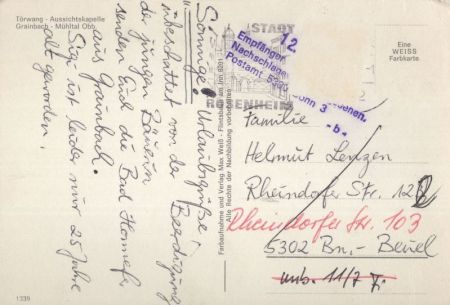 Törwang - Aussichtskapelle
Grainbach - Mühltal Obb.
Sonnige Urlaubsgrüße,
überschattet von der Beerdigung
der jungen Bäuerin
senden Euch die Bad Honnefer
aus Grainbach.
Sie ist leider nur 25 Jahre
alt geworden.
1339
Farbaufnahme und Verlag Max Weiß
Alle Rechte der Nachbildung vorbehalten
STADT
ROSENHEIM
12.
Empfänger
Nachschlage
Postamt
Bonn 3
-b-
Eine
WEISS
Farbkarte
Familie
Helmut Lenzen
Rheindorfer Str. 12
Rheindorfer Str. 103
5302 Bn.-Beuel
unb. 11/7